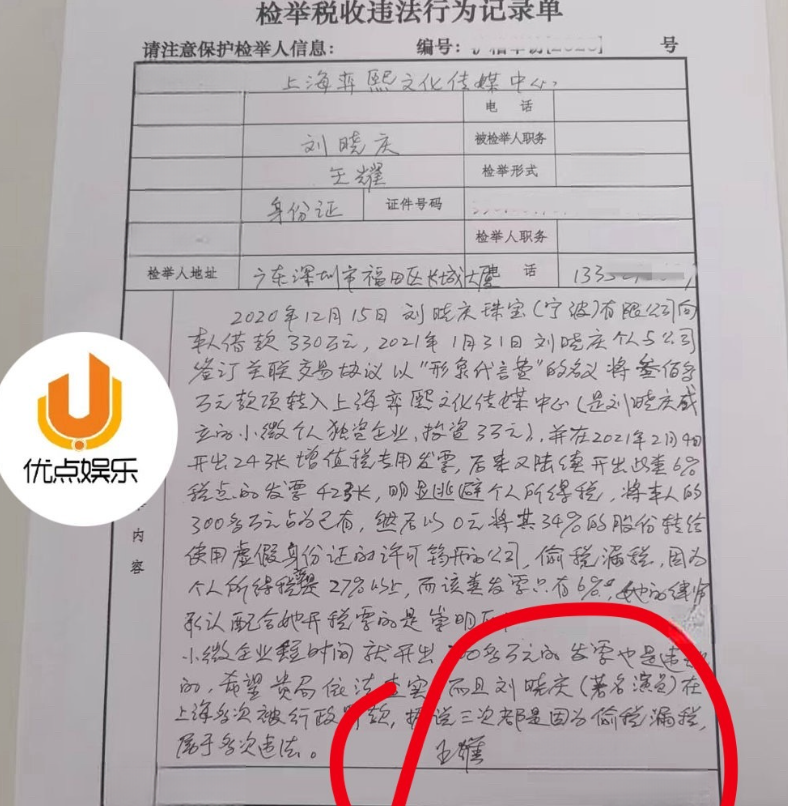 检举税收违法行为记录单
请注意保护检举人信息： 编号： 号
上海弈熙文化传媒中心
电 话
刘晓庆 被检举人职务
王耀 检举形式
身份证 证件号码
检举人职务
检举人地址 广东深圳市福田区长城大厦 电 话 1333
2020年12月15日刘晓庆珠宝(宁波)有限公司向
本人借款330万元，2021年1月31日刘晓庆个人与公司
签订关联交易协议以"形象代言费"的名义将叁佰多
万元款项转入上海弈熙文化传媒中心(是刘晓庆成
立的小微个人独资企业，投资3万元)，并在2021年2月4日
开出24张增值税专用发票，后来又陆续开出此类6%
税点的发票42张，明显逃避个人所得税，将本人的
300多万元占为已有，然后以0元将其34%的股份转给
使用虚假身份证的许可筠开的公司，偷税漏税，因为
个人所得税是27%以上，而该类发票只有6%。她的律师
承认配合她开税票的是崇明
小微企业短时间就开出 00多万元的发票也是违
的，希望贵局依法查实，而且刘晓庆(著名演员)在
上海多次被行政罚款，据说三次都是因为偷税漏税，
属于多次违法。 王耀
内
容
优点娱乐